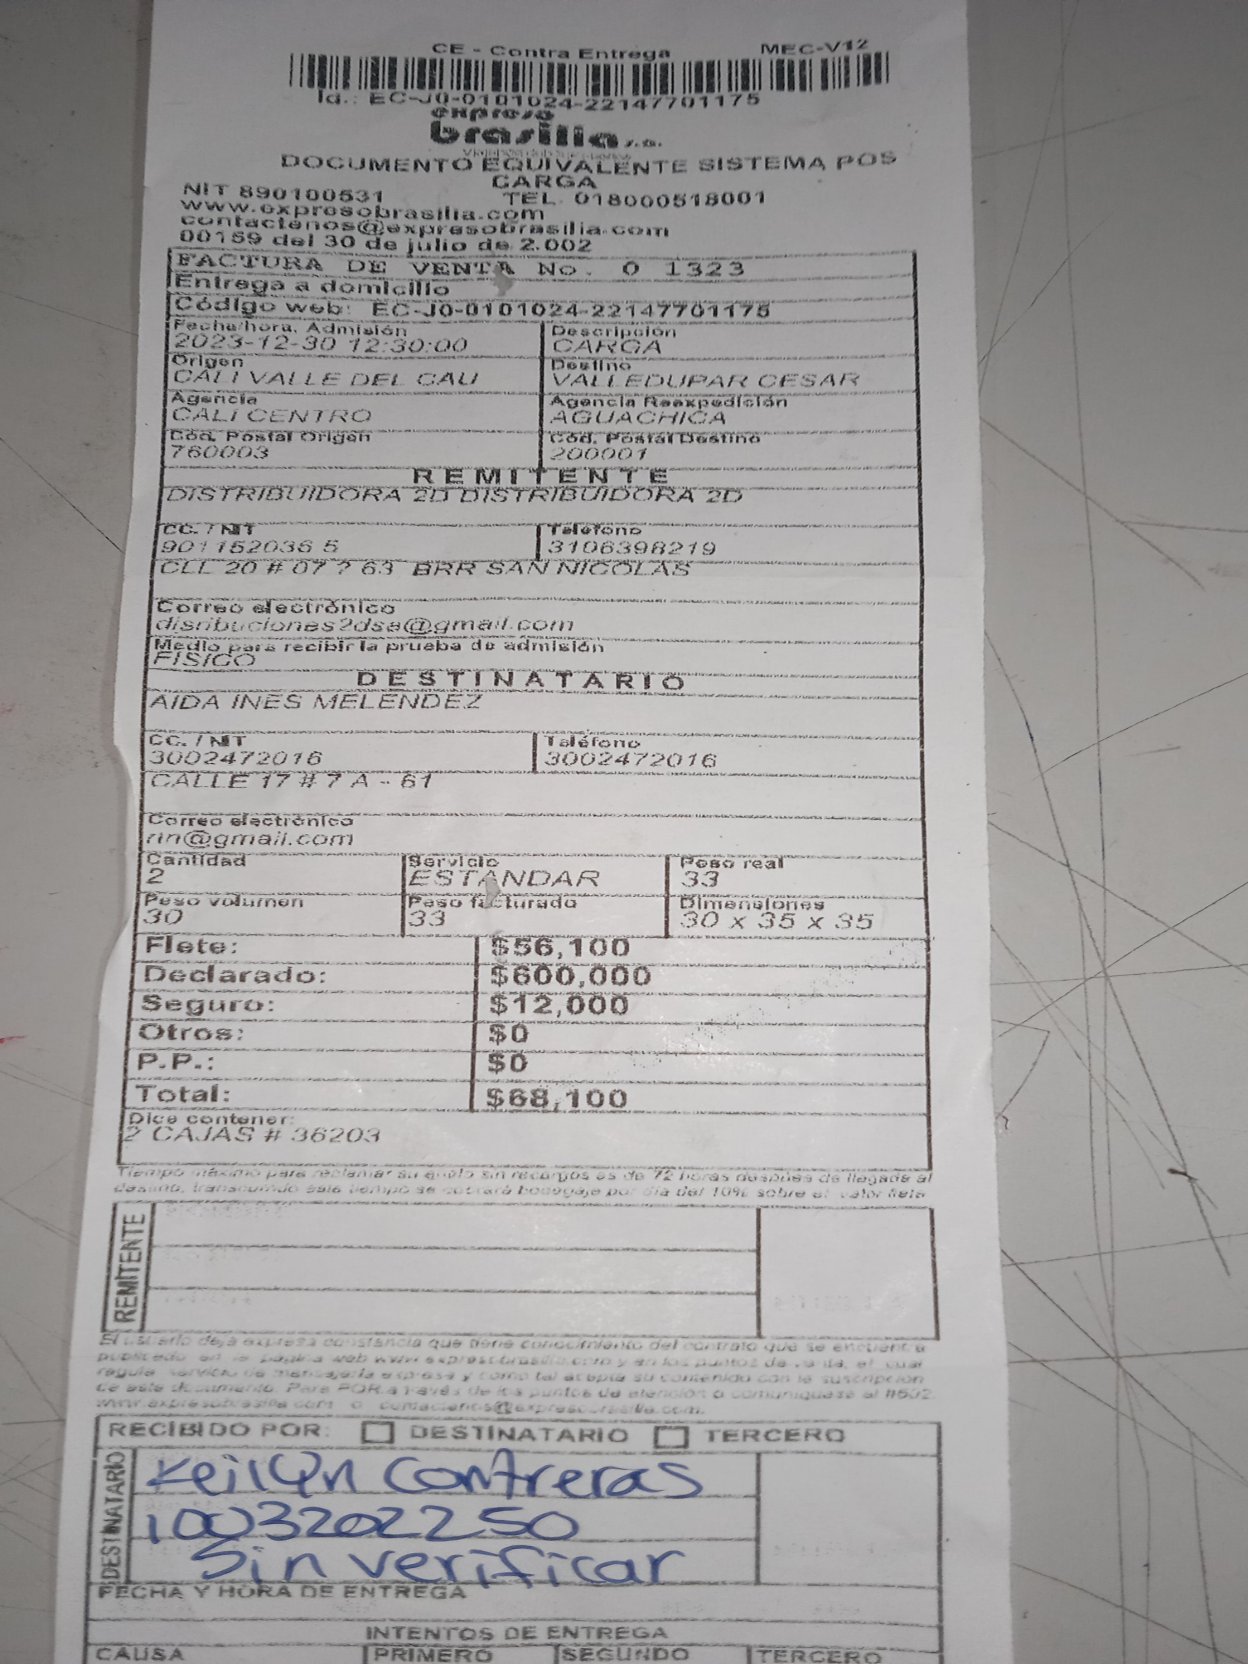 CE - Contra Entrega MEC-V12
Id.: EC-J0-0101024-22147701175
expreso
brasilia s.a.
DOCUMENTO EQUIVALENTE SISTEMA POS
CARGA
NIT 890100531 TEL. 018000518001
www.expresobrasilia.com
contactenos@expresobrasilia.com
00159 del 30 de julio de 2.002
FACTURA DE VENTA No. 0 1323
Entrega a domicilio
Código web: EC-J0-0101024-22147701175
Fecha/hora, Admisión Descripción
2023-12-30 12:30:00 CARGA
Origen Destino
CALI VALLE DEL CAU VALLEDUPAR CESAR
Agencia Agencia Reexpedición
CALI CENTRO AGUACHICA
Cód. Postal Origen Cód. Postal Destino
760003 200001
REMITENTE
DISTRIBUIDORA 2D DISTRIBUIDORA 2D
CC. / NIT Teléfono
901152036 5 3106398219
CLL 20 # 07 ? 63 BRR SAN NICOLAS
Correo electrónico
disribuciones2dsa@gmail.com
Medio para recibir la prueba de admisión
FISICO
DESTINATARIO
AIDA INES MELENDEZ
CC. / NIT Teléfono
3002472016 3002472016
CALLE 17 # 7 A - 61
Correo electrónico
nn@gmail.com
Cantidad Servicio Peso real
2 ESTANDAR 33
Peso volumen Peso facturado Dimensiones
30 33 30 x 35 x 35
Flete: $56,100
Declarado: $600,000
Seguro: $12,000
Otros: $0
P.P.: $0
Total: $68,100
Dice contener:
2 CAJAS # 36203
Tiempo máximo para reclamar su envío sin recargos es de 72 horas después de llegada al
destino, transcurrido este tiempo se cobrará bodegaje por día del 10% sobre el valor flete
REMITENTE
El usuario deja expresa constancia que tiene conocimiento del contrato que se encuentra
publicado en la página web www.expresobrasilia.com y en los puntos de venta, el cual
regula servicio de mensajería expresa y como tal acepta su contenido con la suscripción
de este documento. Para PQR a través de los puntos de atención o comuníquese al #502
www.expresobrasilia.com o contactenos@expresobrasilia.com.
RECIBIDO POR: DESTINATARIO TERCERO
DESTINATARIO
Keilyn Contreras
1003202250
Sin verificar
FECHA Y HORA DE ENTREGA
INTENTOS DE ENTREGA
CAUSA PRIMERO SEGUNDO TERCERO